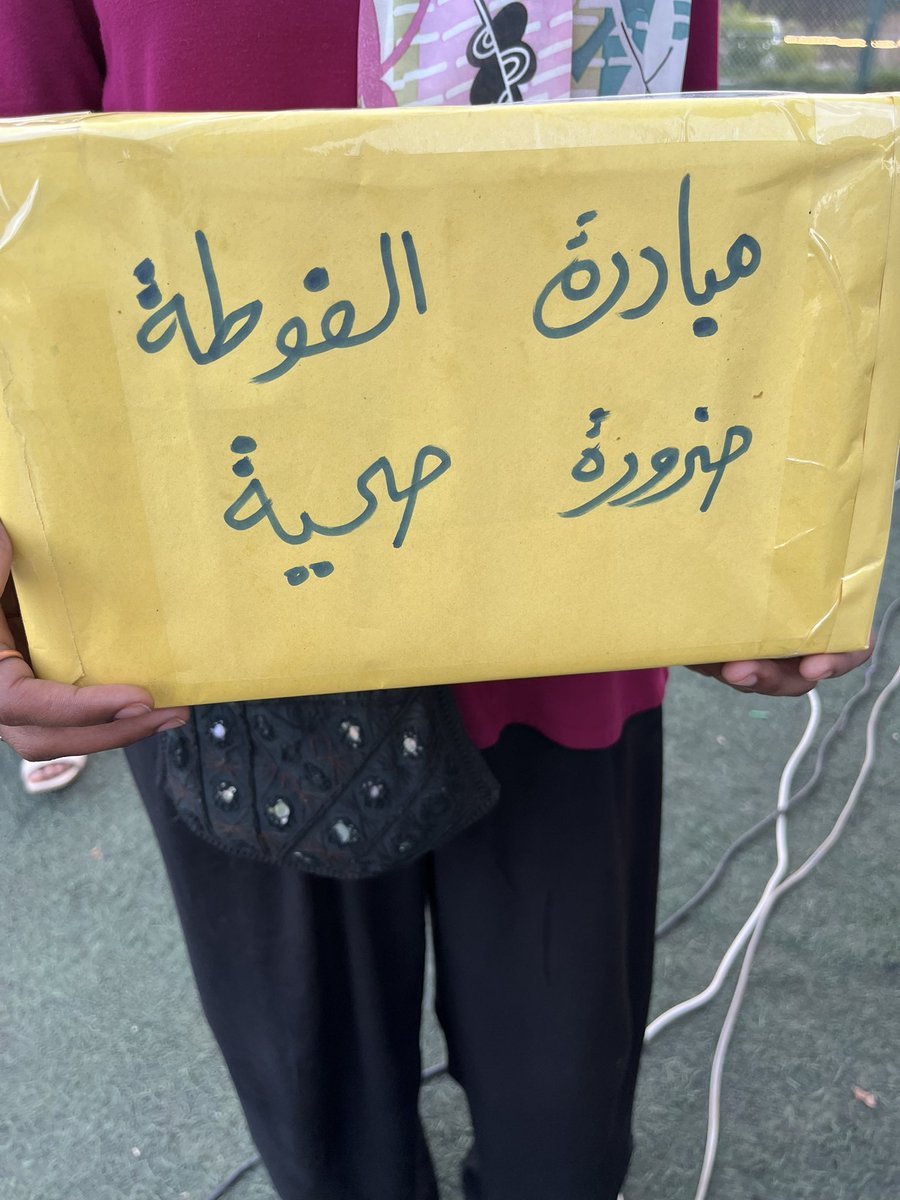 مبادرة الفوطة
ضرورة صحية